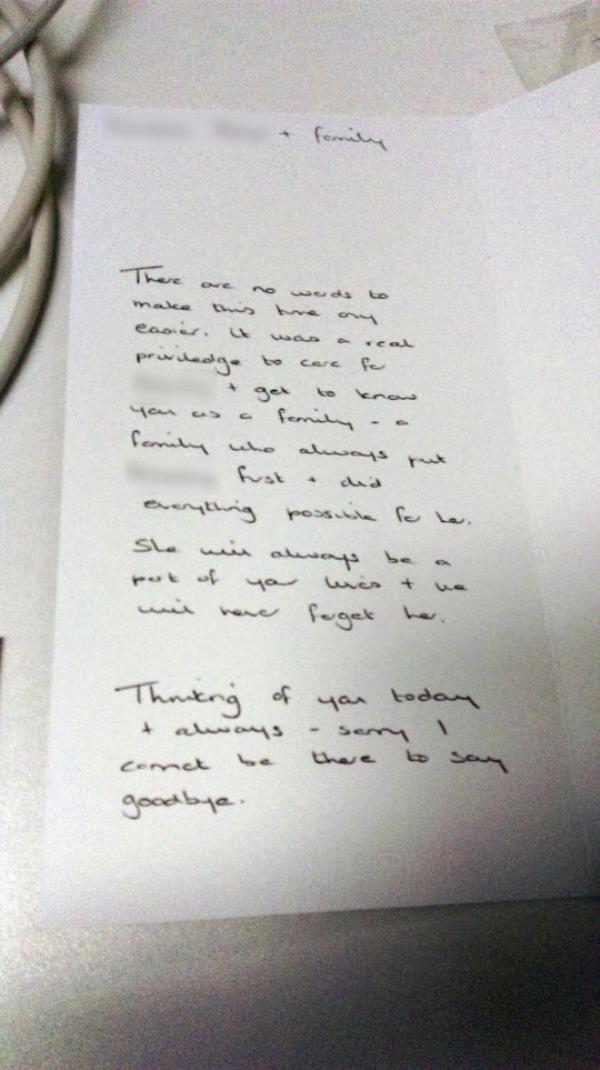 + family
There are no words to
make this time any
easier. It was a real
priviledge to care for
+ get to know
you as a family - a
family who always put
first + did
everything possible for her.
She will always be a
part of your lives + we
will never forget her.
Thinking of you today
+ always - sorry I
cannot be there to say
goodbye.